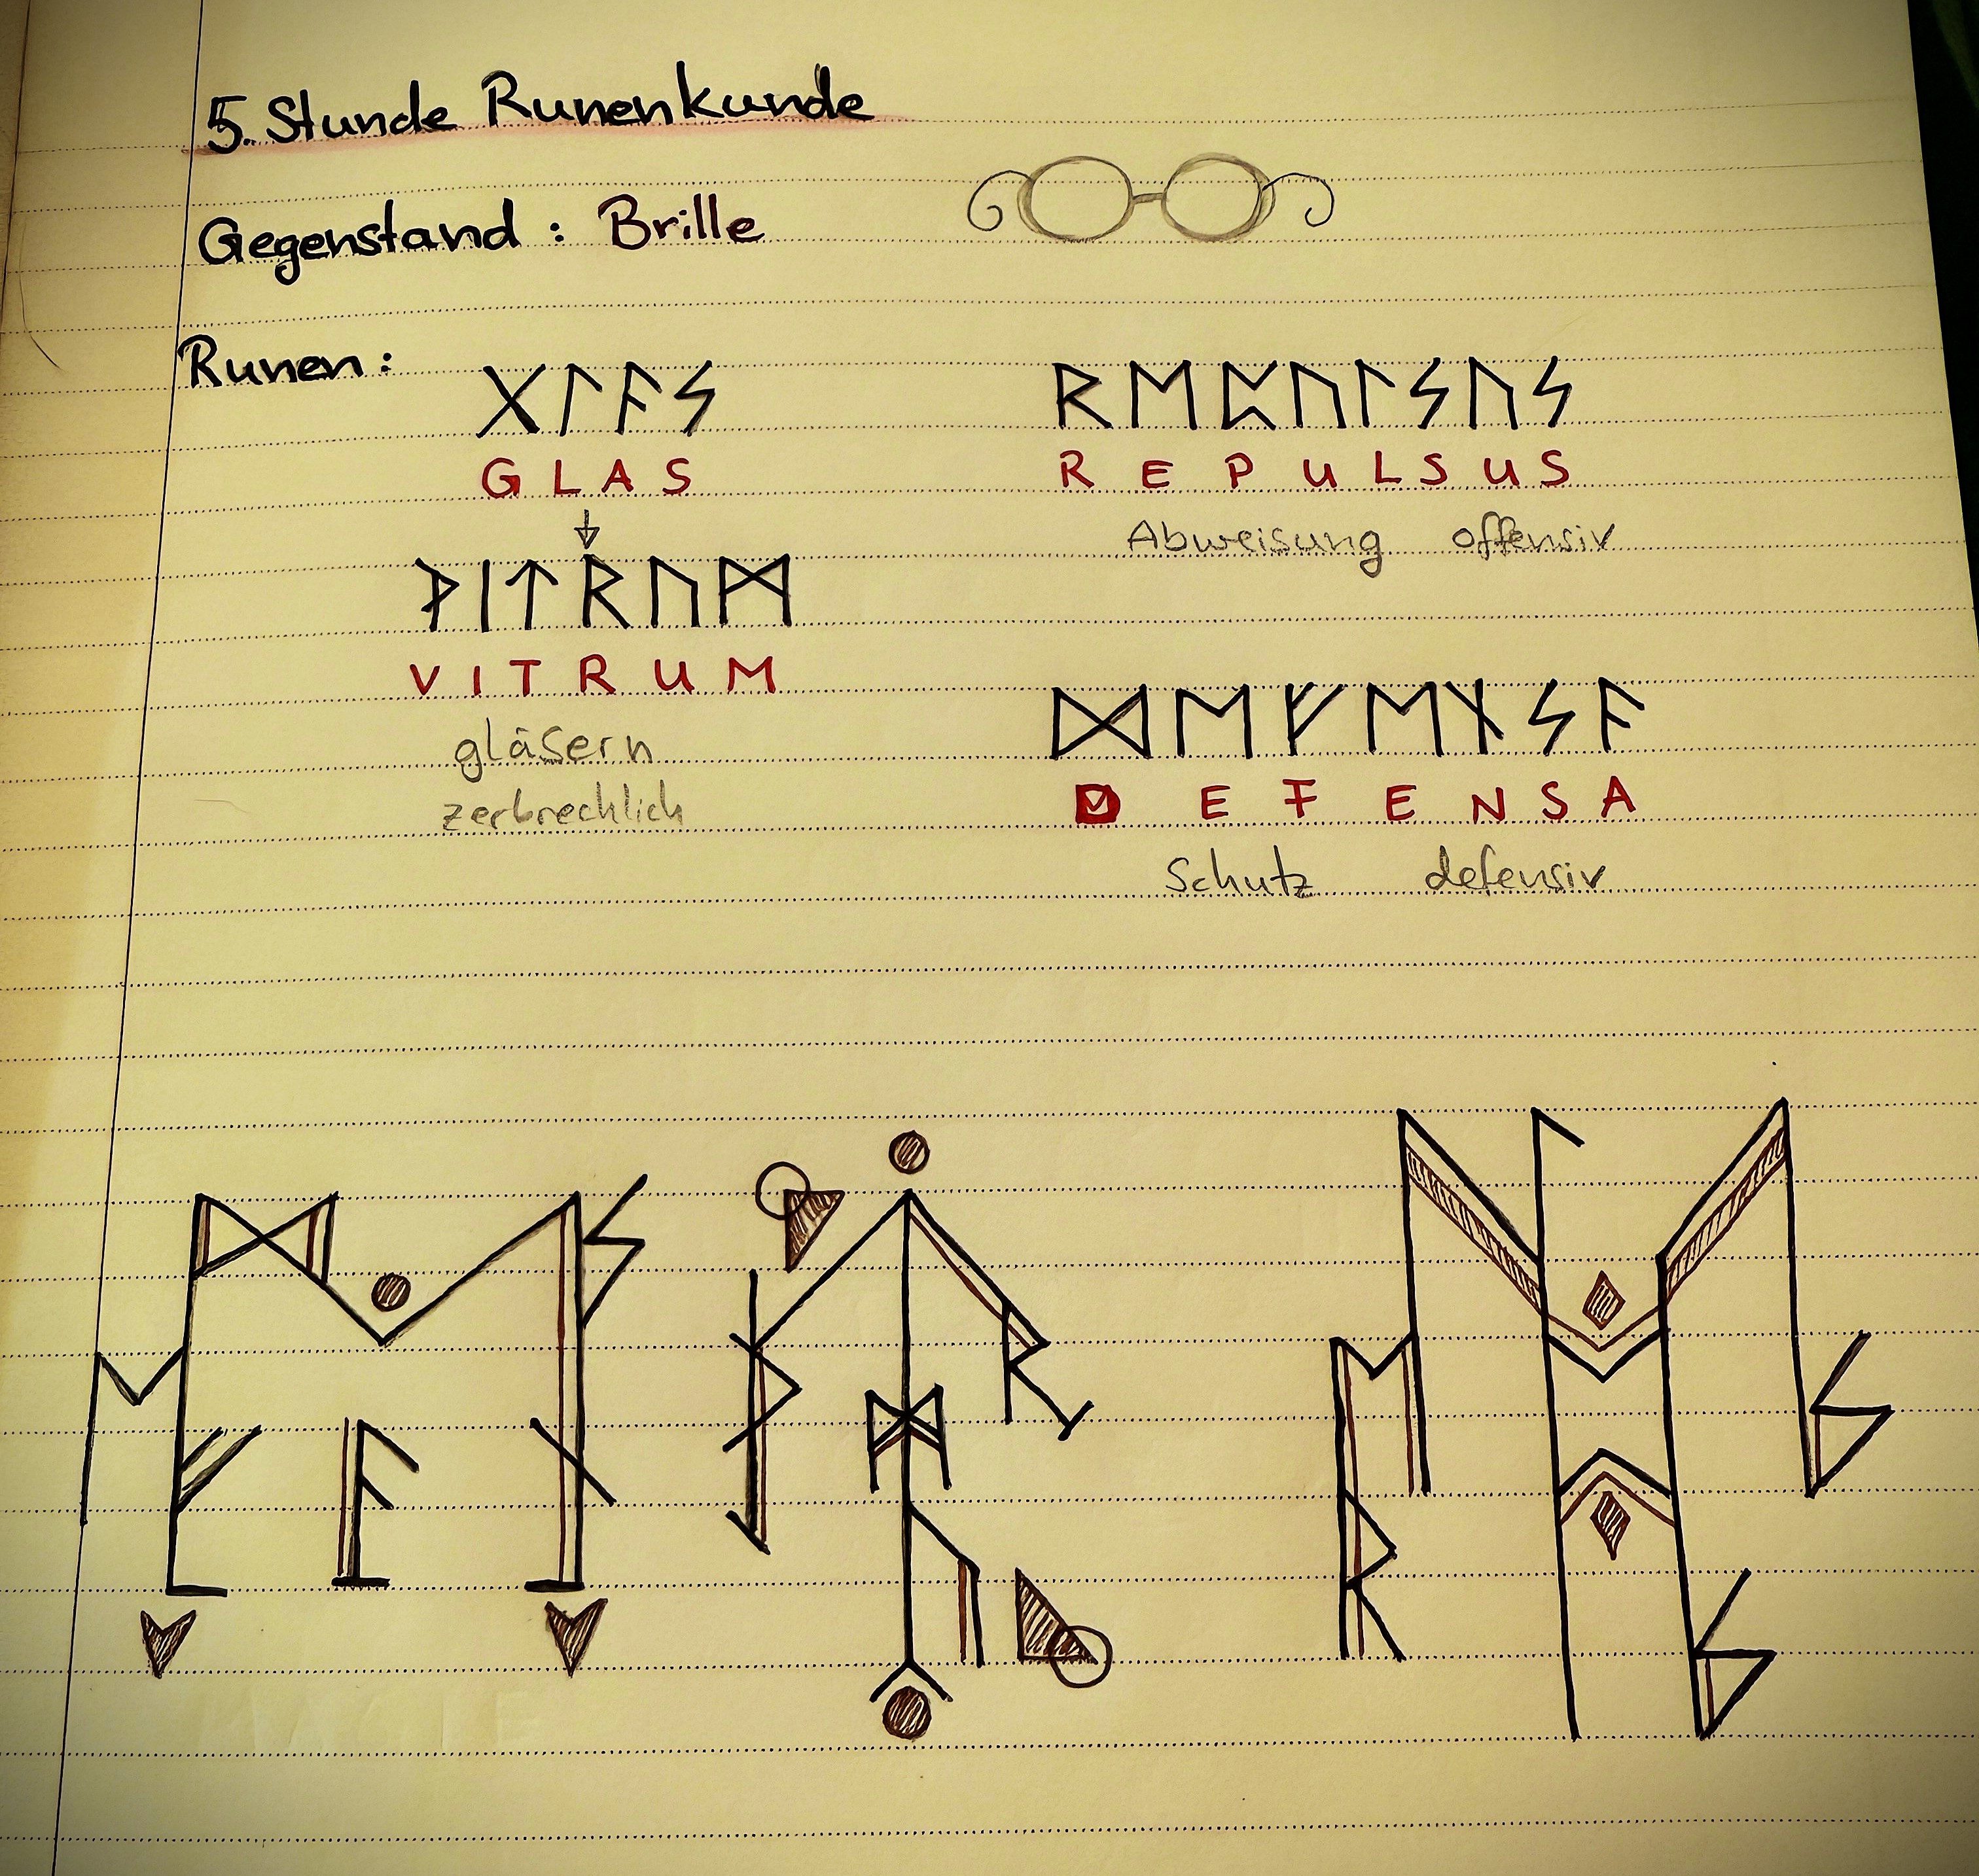 5. Stunde Runenkunde
Gegenstand : Brille
Runen :
ᚷᛚᚨᛋ
GLAS
↓
ᚹᛁᛏᚱᚢᛗ
VITRUM
gläsern
zerbrechlich
ᚱᛖᛈᚢᛚᛋᚢᛋ
REPULSUS
Abweisung offensiv
ᛞᛖᚠᛖᚾᛋᚨ
DEFENSA
Schutz defensiv